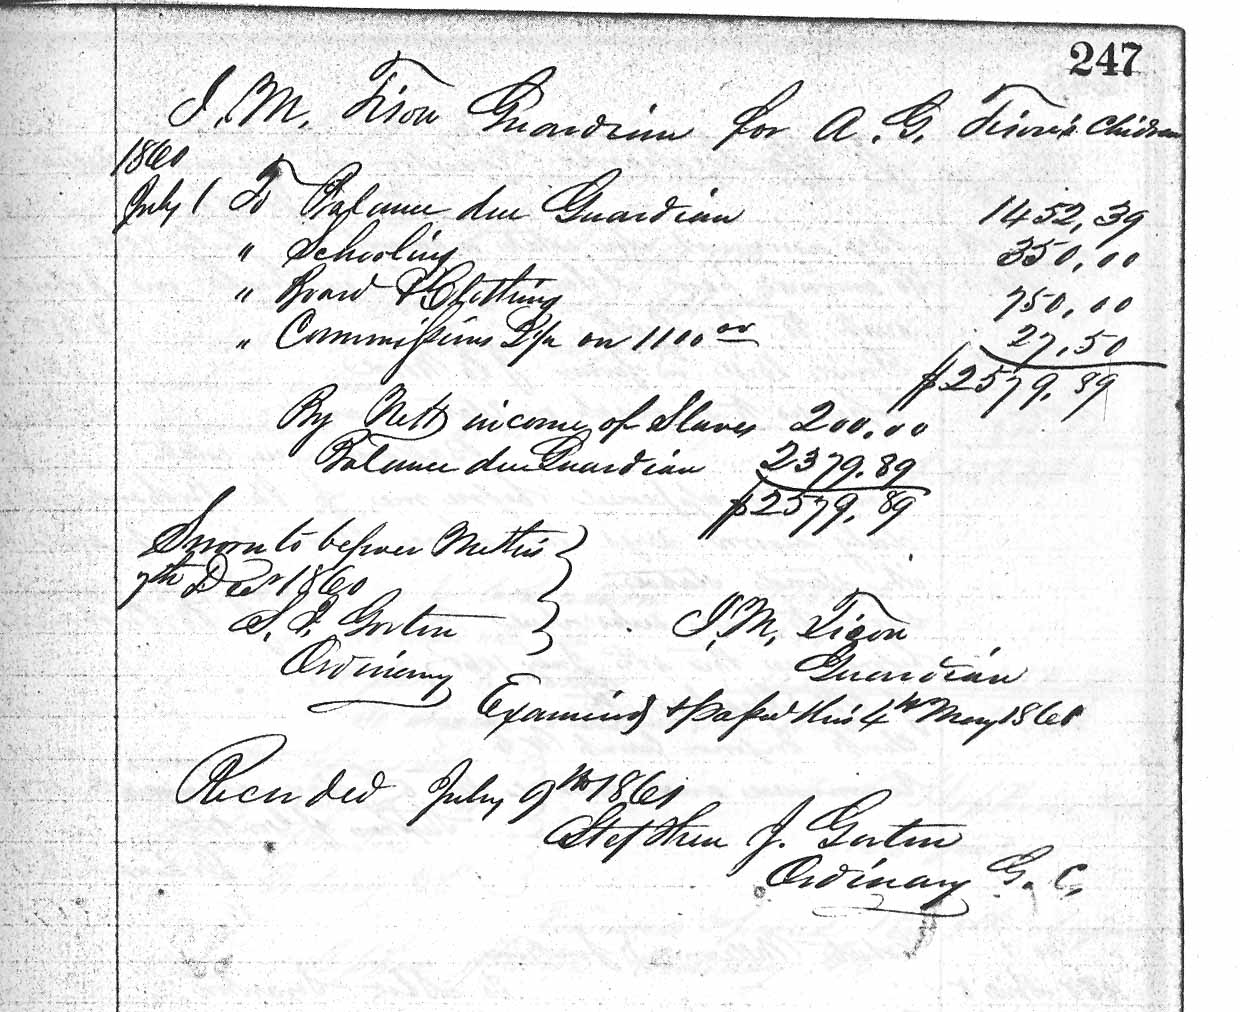 247
J. M. Tison Guardian for A. G. Tison's Children
1860
July 1 To Balance due Guardian 1452,39
" Schooling 350,00
" Board & Clothing 750,00
" Commissions 2½ on 1100 00 27,50
$2579.89
By Nett income of Slaves 200.00
Balance due Guardian 2379.89
$2579.89
Sworn to before me this
7th Decr 1860
S. J. Gorton
Ordinary
J. M. Tison
Guardian
Examined & passed this 4th May 1861
Recorded July 9th 1861
Stephen J. Gorton
Ordinary G. C.